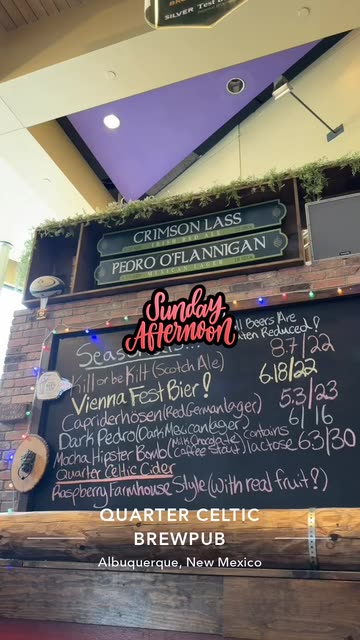 SILVER
CRIMSON LASS
IRISH RED ALE
PEDRO O'FLANNIGAN
MEXICAN LAGER
Sunday
Afternoon
All Beers Are
Reduced!
Kill or be Kilt (Scotch Ale) 8.7/22
Vienna Fest Bier! 6.18/22
Capriderhösen (Red German lager) 5.3/23
Dark Pedro (Dark Mexican lager) 6/16
Mocha Hipster Bomb (Milk Chocolate Coffee Stout) contains lactose 6.3/30
Quarter Celtic Cider
Raspberry Farmhouse Style (with real fruit?)
QUARTER CELTIC
BREWPUB
Albuquerque, New Mexico